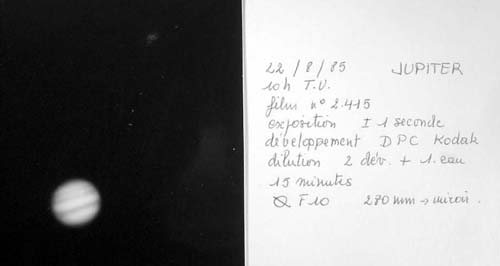 22 / 8 / 85 JUPITER
10h T.U.
film n° 2.415
exposition I 1 seconde
développement DPC Kodak
dilution 2 dév. + 1. eau
15 minutes
F10 280 mm → miroir.